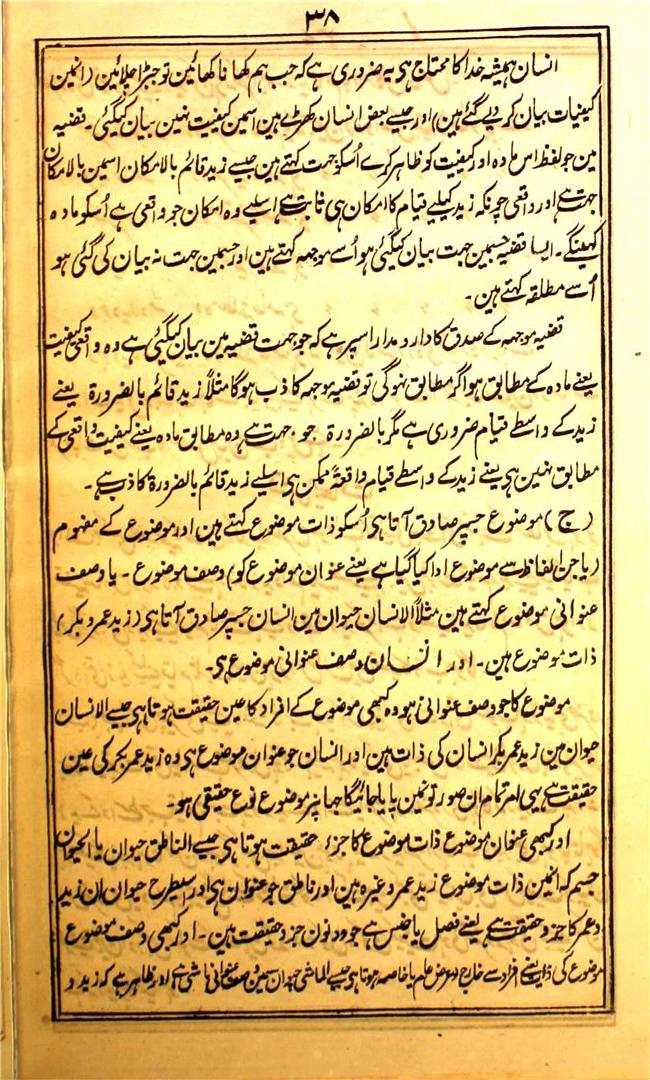 ۳۸
انسان ہمیشہ خدا کا محتاج ہی یہ ضروری ہے کہ جب ہم کھانا کھائین تو جبڑا ہلائین (انمین
کیفیات بیان کر دیے گئے ہین) اور جیسے بعض انسان کھڑے ہین اسمین کیفیت نہین بیان کیگئی۔ قضیہ
مین جو لفظ اس مادہ اور کیفیت کو ظاہر کرے اُسکو جہت کہتے ہین جیسے زید قائم بالامکان اسمین بالامکان
جہت ہے اور واقعی چونکہ زید کیلیے قیام کا امکان ہی ثابت ہے اسلیے وہ امکان جو واقعی ہے اُسکو مادہ
کہینگے۔ ایسا قضیہ جسمین جہت بیان کیگئی ہو اُسے موجہہ کہتے ہین اور جسمین جہت نہ بیان کی گئی ہو
اُسے مطلقہ کہتے ہین۔
قضیہ موجہہ کے صدق کا دارومدار اسپر ہے کہ جو جہت قضیہ مین بیان کیگئی ہے وہ واقعی کیفیت
یعنے مادہ کے مطابق ہو اگر مطابق نہوگی تو قضیہ موجہہ کاذب ہوگا مثلاً زید قائم بالضرورۃ یعنے
زید کے واسطے قیام ضروری ہے مگر بالضرورۃ جو جہت ہے وہ مطابق مادہ یعنے کیفیت واقعی کے
مطابق نہین ہی یعنے زید کے واسطے قیام واقعۃً ممکن ہی اسلیے زید قائم بالضرورۃ کاذب ہے۔
(ج) موضوع جسپر صادق آتا ہی اُسکو ذات موضوع کہتے ہین اور موضوع کے مفہوم
(یا جن الفاظ سے موضوع ادا کیا گیا ہے یعنے عنوان موضوع کو) وصف موضوع۔ یا وصف
عنوانی موضوع کہتے ہین مثلاً الانسان حیوان مین انسان جسپر صادق آتا ہی (زید عمرو بکر)
ذات موضوع ہین۔ اور انسان وصف عنوانی موضوع ہی۔
موضوع کا جو وصف عنوانی ہو وہ کبھی موضوع کے افراد کا عین حقیقت ہوتا ہی جیسے الانسان
حیوان مین زید عمر بکر انسان کی ذات ہین اور انسان جو عنوان موضوع ہی وہ زید عمر بکر کی عین
حقیقت ہے یہی امر تمام ان صورتونمین پایا جائیگا جہانپر موضوع نوع حقیقی ہو۔
اور کبھی عنوان موضوع ذات موضوع کا جزء حقیقت ہوتا ہی جیسے الناطق حیوان یا الحیوان
جسم کہ انمین ذات موضوع زید عمرو وغیرہ ہین اور ناطق جو عنوان ہی اور اسیطرح حیوان ان زید
و عمر کا جزو حقیقت ہے یعنے فصل یا جنس ہے جو دونون جزو حقیقت ہین۔ اور کبھی وصف موضوع
موضوع کی ذات یعنے افراد سے خارج عرض عام یا خاصہ ہوتا ہی جیسے الماشی حیوان اسمین وصف عنوانی ماشی ہے اور ظاہر ہے کہ زید و